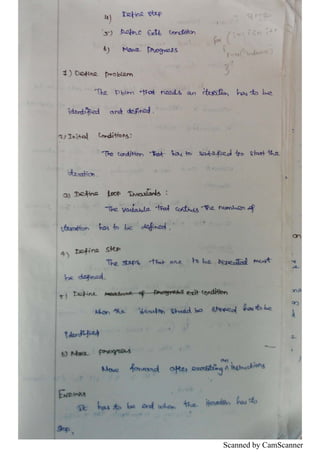 4) Define step
5) Define Exit condition
6) Make progress
1) Define problem
The pblm that needs an iteration has to be
identified and defined.
2) Initial conditions:
The condition that has to satisfied to start the
iteration.
3) Define Loop Invariants :
The variable that controls the number of
iteration has to be defined.
4) Define step
The steps that are to be repeated must
be defined.
5) Define measure of progress exit condition
When the iteration should be stopped has to be
identified
6) Make progress
Move forward after executing an instructions
It has to be end when the iteration has to
stop.
Scanned by CamScanner